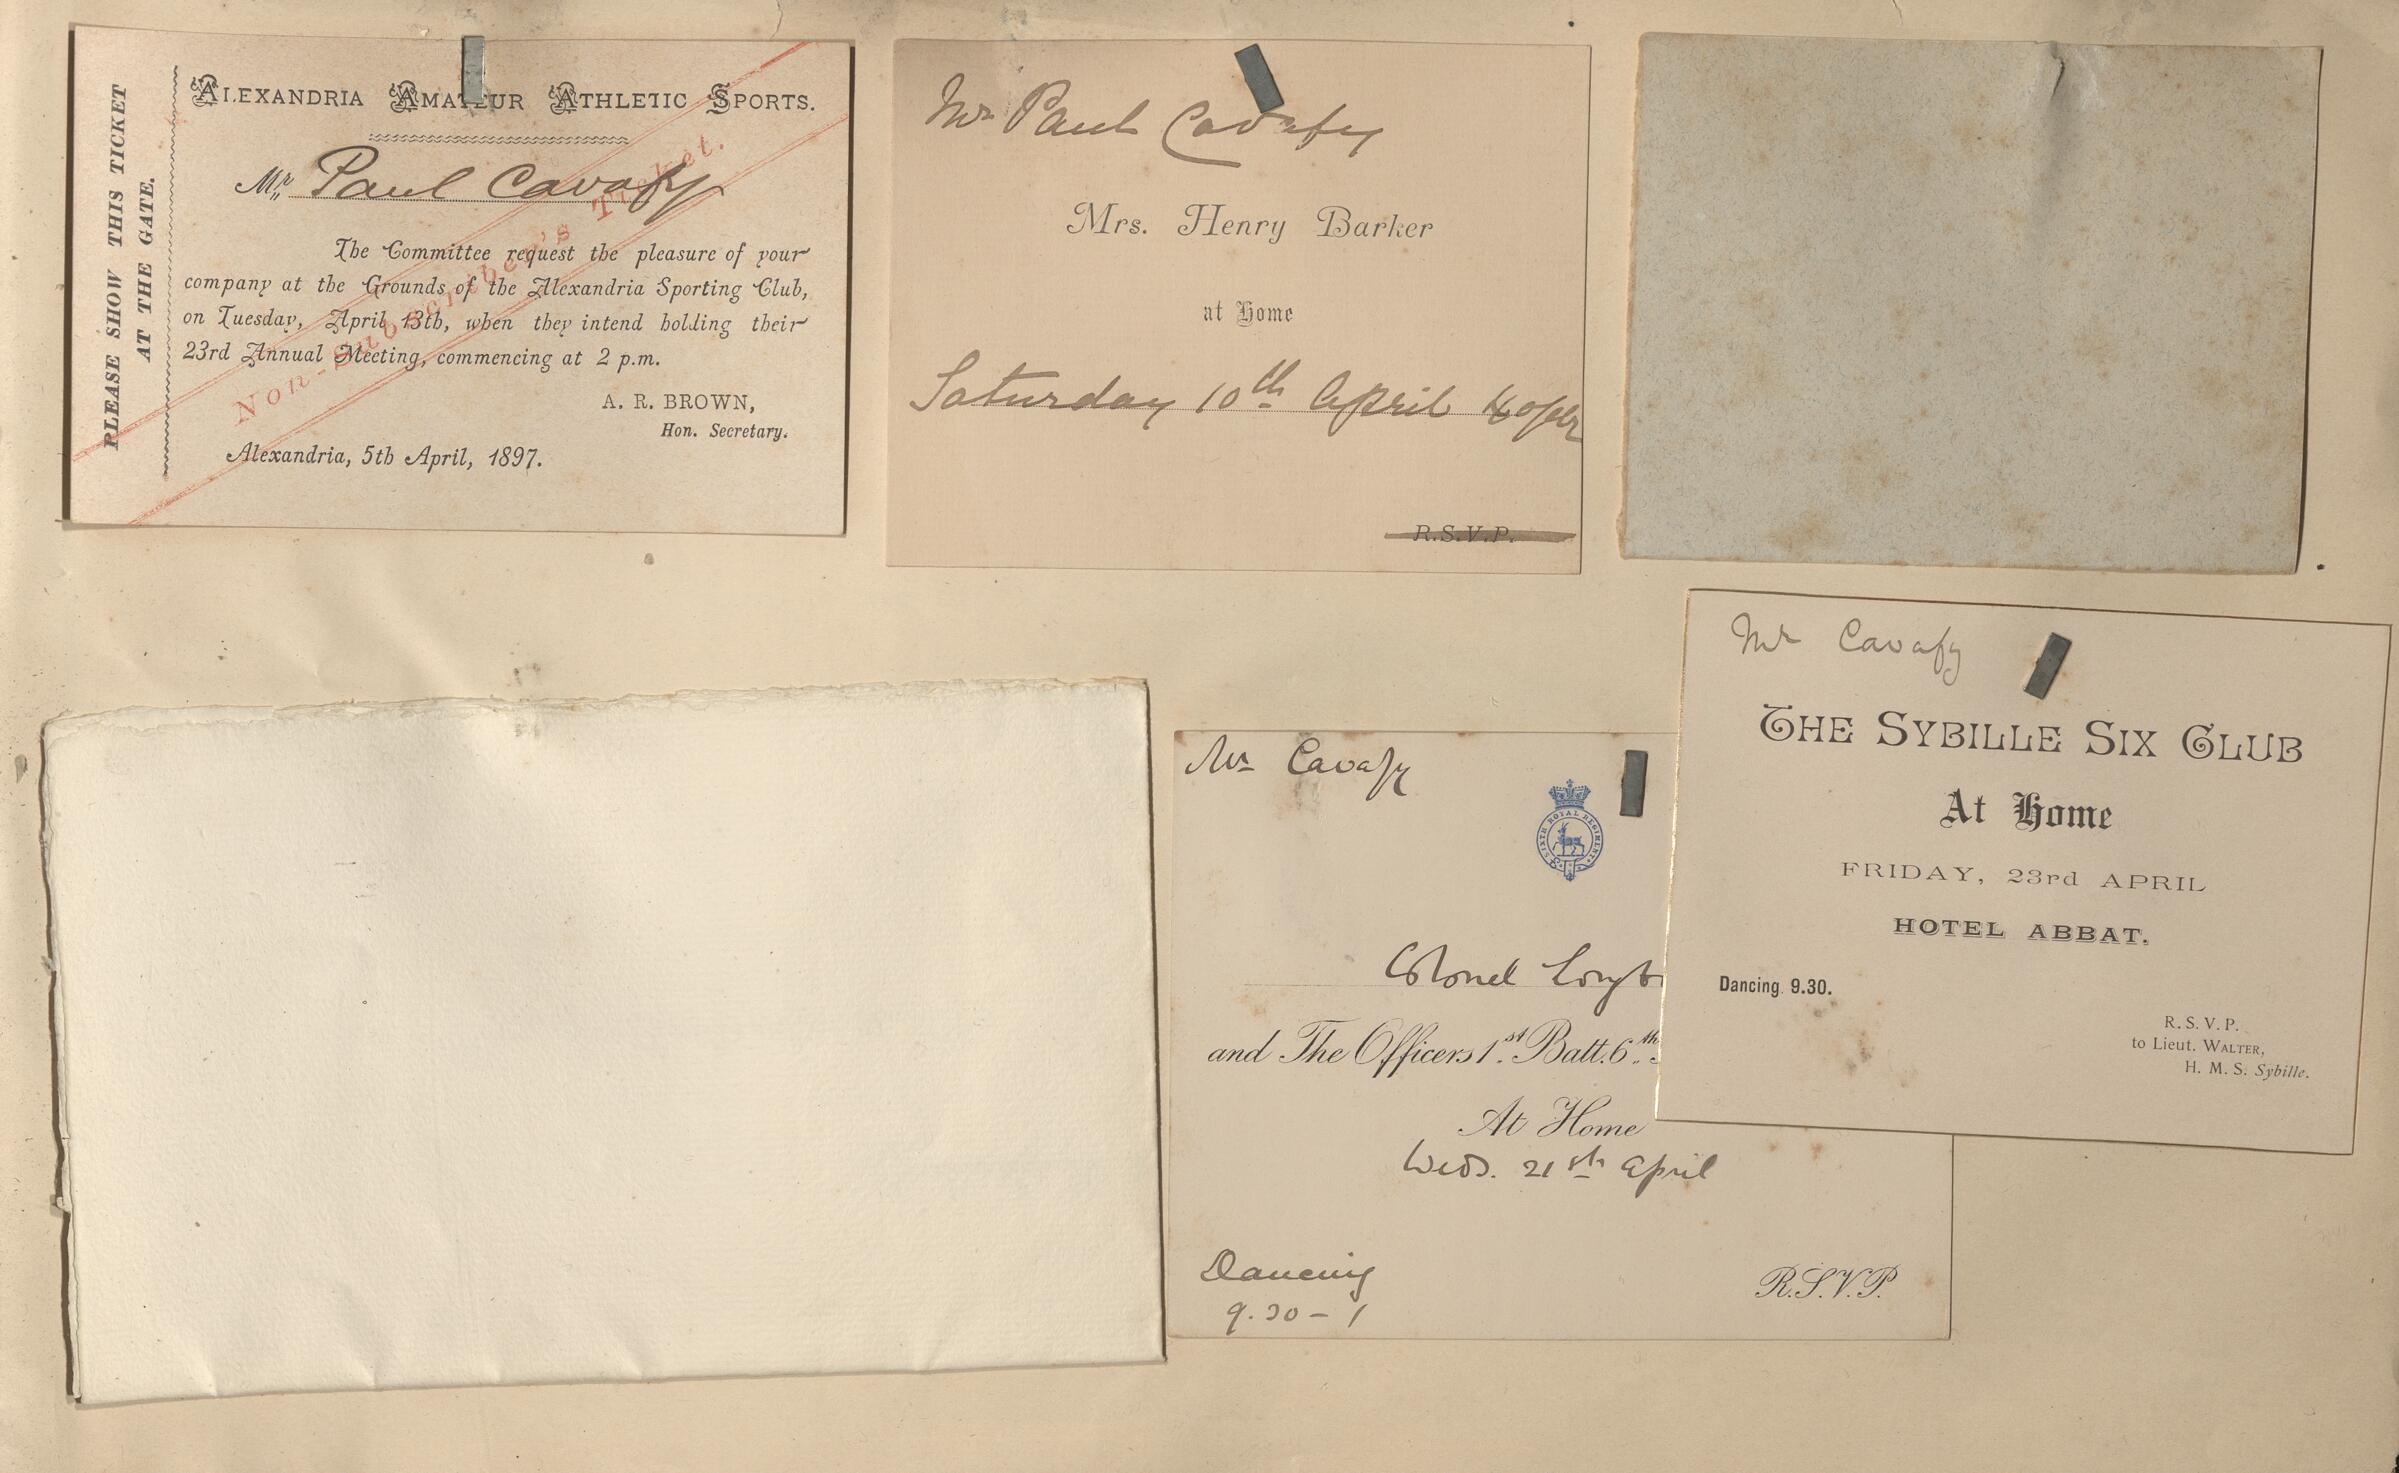 PLEASE SHOW THIS TICKET
AT THE GATE.
ALEXANDRIA AMATEUR ATHLETIC SPORTS.
Mr Paul Cavafy
The Committee request the pleasure of your
company at the Grounds of the Alexandria Sporting Club,
on Tuesday, April 13th, when they intend holding their
23rd Annual Meeting, commencing at 2 p.m.
A. R. BROWN,
Hon. Secretary.
Alexandria, 5th April, 1897.
Non-Subscriber's Ticket.
Mr Paul Cavafy
Mrs. Henry Barker
at Home
Saturday 10th April
R.S.V.P.
Mr Cavafy
SIXTH ROYAL REGIMENT
Colonel
and The Officers 1st Batt. 6th
At Home
Weds. 21st April
Dancing
9.30 - 1
R.S.V.P.
Mr Cavafy
THE SYBILLE SIX CLUB
At Home
FRIDAY, 23rd APRIL
HOTEL ABBAT.
Dancing 9.30.
R. S. V. P.
to Lieut. WALTER,
H. M. S. Sybille.